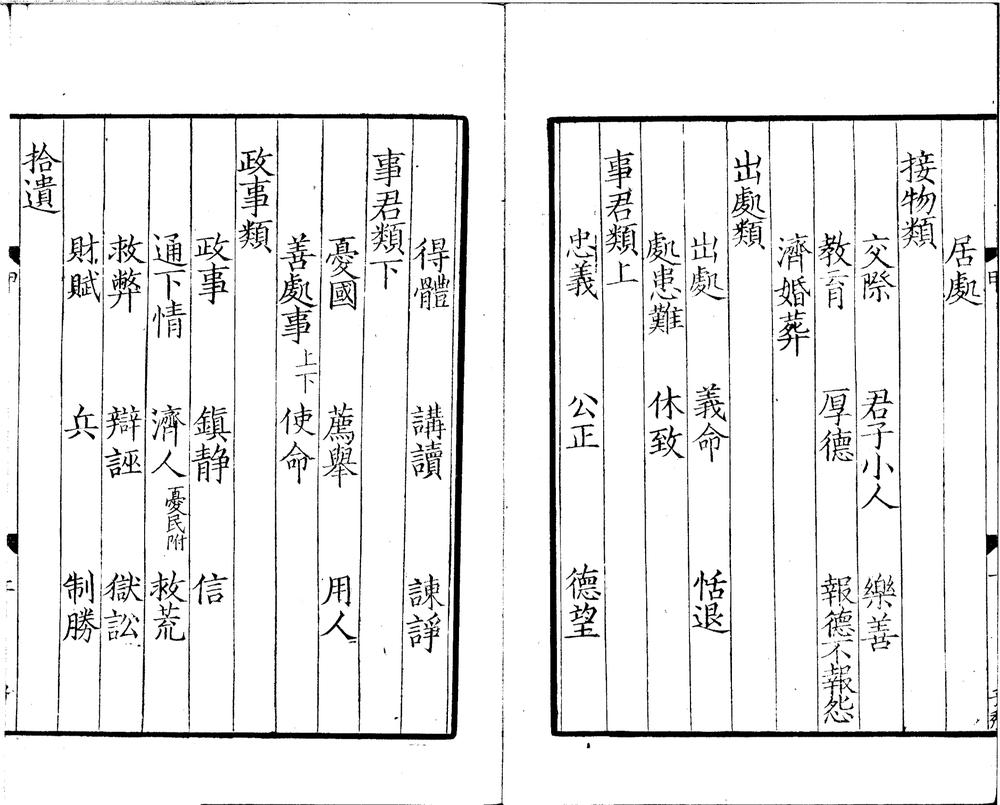 居處
接物類
交際 君子小人 樂善
教育 厚德 報德不報怨
濟婚葬
出處類
出處 義命 恬退
處患難 休致
事君類上
忠義 公正 德望
得體 講讀 諫諍
事君類下
憂國 薦舉 用人
善處事上下 使命
政事類
政事 鎮静 信
通下情 濟人憂民附 救荒
救弊 辯誣 獄訟
財賦 兵 制勝
拾遺